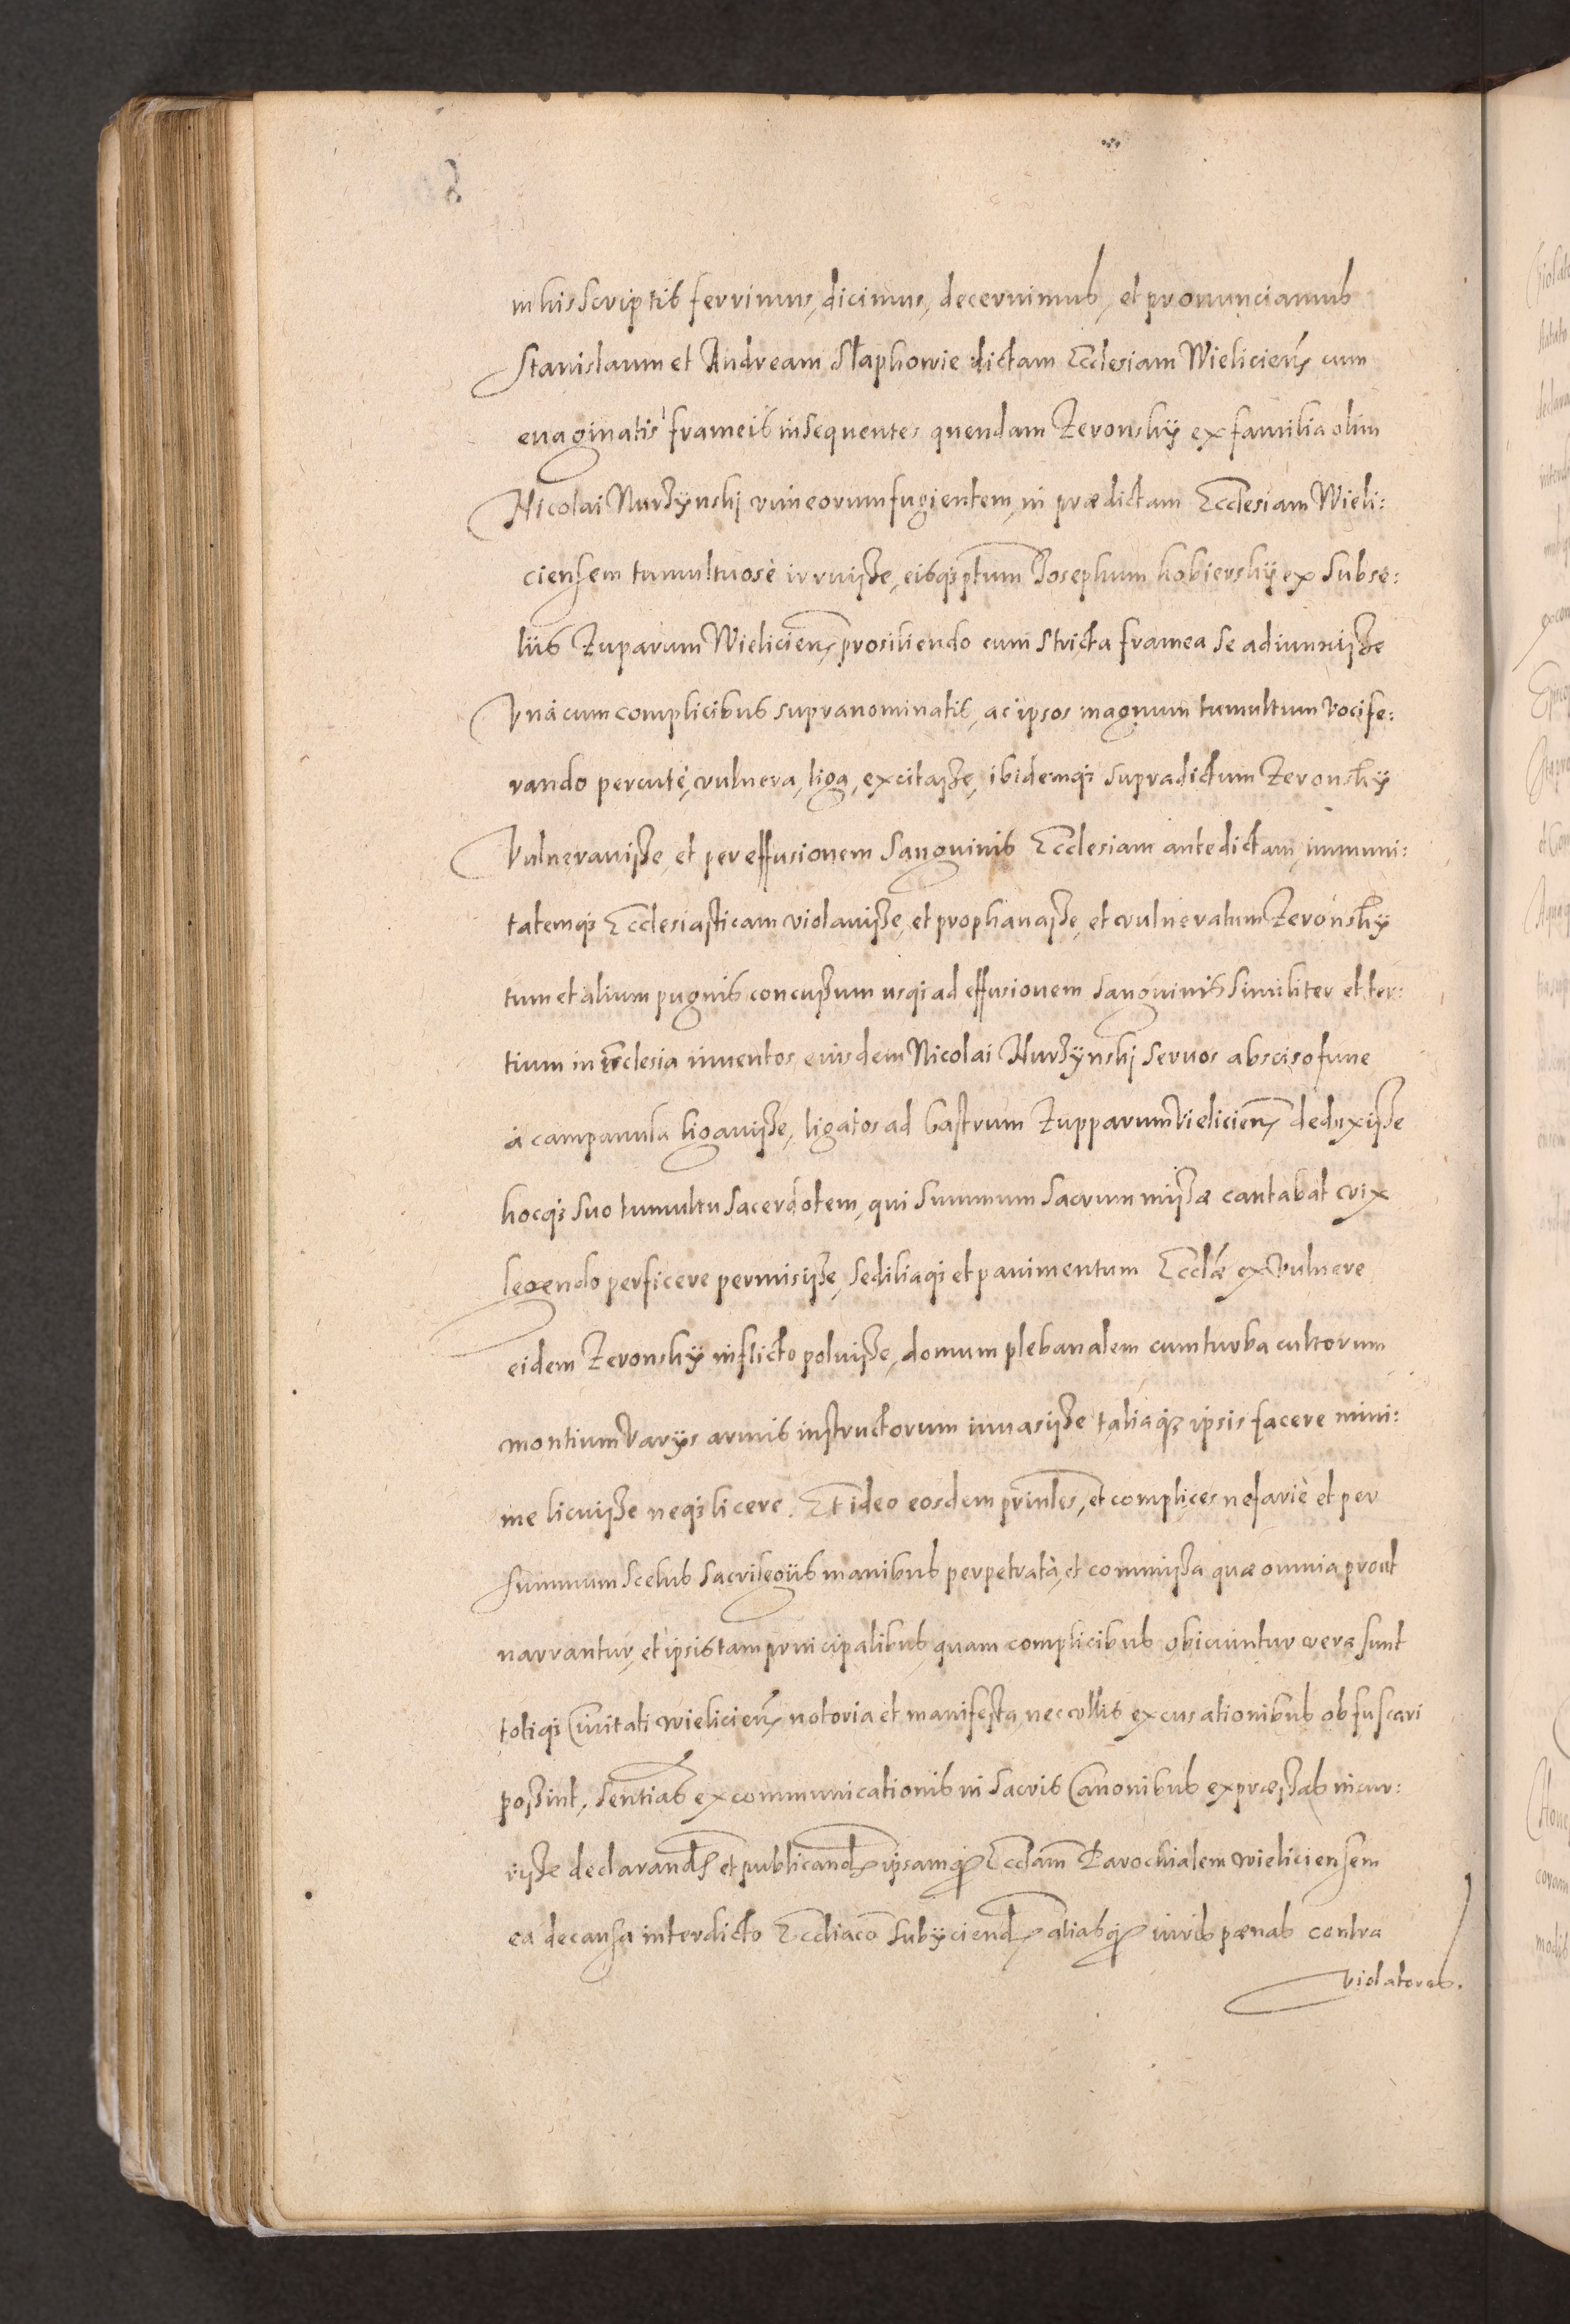 in his scriptis ferrimus, dicimus, decernimus, et pronunciamus
Stanislaum et Andream Slaphowie dictam Ecclesiam Wieliciens cum
euaginatis frameis insequentes quendam Zeronsky ex familia olim
Nicolai Nurzÿnskj vim eorum fugientem, in prædictam Ecclesiam Wieli:
ciensem tumultuosè irruisse, eisq; ptum Josephum kobiersky ex subse:
liis Zuparum Wieliciens prosiliendo cum stricta framea se adiunxisse
Vnà cum complicibus supranominatis, ac ipsos magnum tumultum vocife:
rando percute, vulnera, liga, excitasse, ibidemq; supradictum Zeronsky
Vulnerauisse, et per effusionem sanguinis Ecclesiam antedictam, immuni:
tatemq; Ecclesiasticam violauisse, et prophanasse, et vulneratum Zeronsky
tum et alium pugnis concussum usq; ad effusionem sanguinis similiter et ter:
tium in ecclesia inuentos, euisdem Nicolai Nurzÿnskj seruos absciso fune
à campanula ligauisse, ligatos ad Castrum Zupparum Vieliciens deduxisse
hocq; suo tumultu sacerdotem, qui summum sacrum missæ cantabat vix
legendo perficere permisisse, sediliaq; et pauimentum Ecclæ ex vulnere
eidem Zeronsky inflicto poluisse, domum plebanalem cum turba cultorum
montium varijs armis instructorum inuasisse taliaq; ipsis facere mini:
me licuisse neq; licere. Et ideo eosdem prinles, et complices nefariè et per
summum scelus sacrilegiis manibus perpetrata, et commissa quæ omnia prout
narrantur, et ipsis tam principalibus, quam complicibus obiciuntur vera sunt
totiq; Ciuitati wieliciens notoria et manifesta, nec vllis excusationibus obfuscari
possint, sentias excommunicationis in sacris Canonibus expræssas incur:
risse declarand et publicand, ipsamq; Ecclam Parochialem wieliciensem
ea de causa interdicto Ecclìaco subijciend, aliasq; iuris pænas contra
violatores.